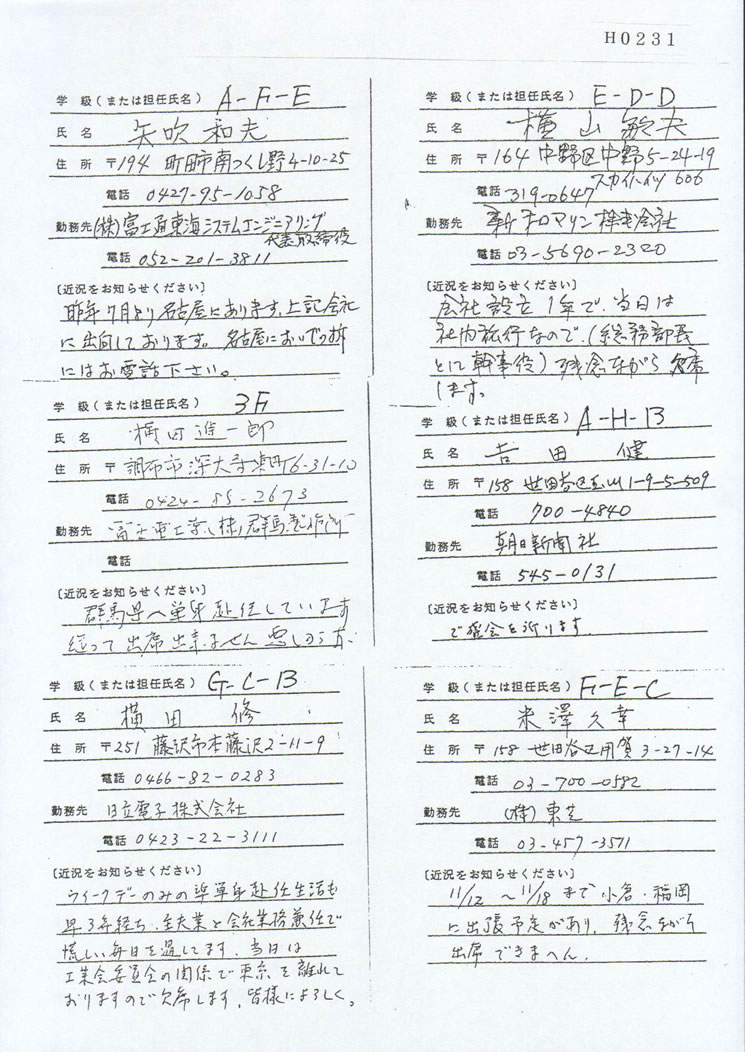 H0231
学 級（または担任氏名） A-F-E
氏 名 矢吹 和夫
住 所 〒194 町田市南つくし野4-10-25
電話 0427-95-1058
勤務先 (株)富士通東海システムエンジニアリング
代表取締役
電話 052-201-3811
〔近況をお知らせください〕
昨年7月より名古屋にあります。上記会社
に出向しております。名古屋においでの節
にはお電話下さい。
学 級（または担任氏名） 3F
氏 名 横田進一郎
住 所 〒 調布市深大寺東町6-31-10
電話 0424-85-2673
勤務先 富士重工業(株)群馬製作所
電話
〔近況をお知らせください〕
群馬県へ単身赴任しています
従って出席出来ません
学 級（または担任氏名） G-C-B
氏 名 横田 修
住 所 〒251 藤沢市本藤沢2-11-9
電話 0466-82-0283
勤務先 日立電子株式会社
電話 0423-22-3111
〔近況をお知らせください〕
ウイークデーのみの準単身赴任生活も
早3年経ち、主夫業と会社業務兼任で
慌しい毎日を過してます。当日は
工業会委員会の関係で東京を離れて
おりますので欠席します。皆様によろしく。
学 級（または担任氏名） E-D-D
氏 名 横山 敏夫
住 所 〒164 中野区中野5-24-19
スカイハイツ606
電話 319-0647
勤務先 新和マリン株式会社
電話 03-5690-2320
〔近況をお知らせください〕
会社設立1年で、当日は
社内旅行なので、（総務部長
として幹事役）残念ながら欠席
します。
学 級（または担任氏名） A-H-B
氏 名 吉田 健
住 所 〒158 世田谷区玉川1-9-5-509
電話 700-4840
勤務先 朝日新聞社
電話 545-0131
〔近況をお知らせください〕
ご盛会を祈ります。
学 級（または担任氏名） F-E-C
氏 名 米澤久幸
住 所 〒158 世田谷区用賀3-27-14
電話 03-700-0582
勤務先 (株)東芝
電話 03-457-3571
〔近況をお知らせください〕
11/12 〜11/18まで小倉・福岡
に出張予定があり、残念ながら
出席できません。